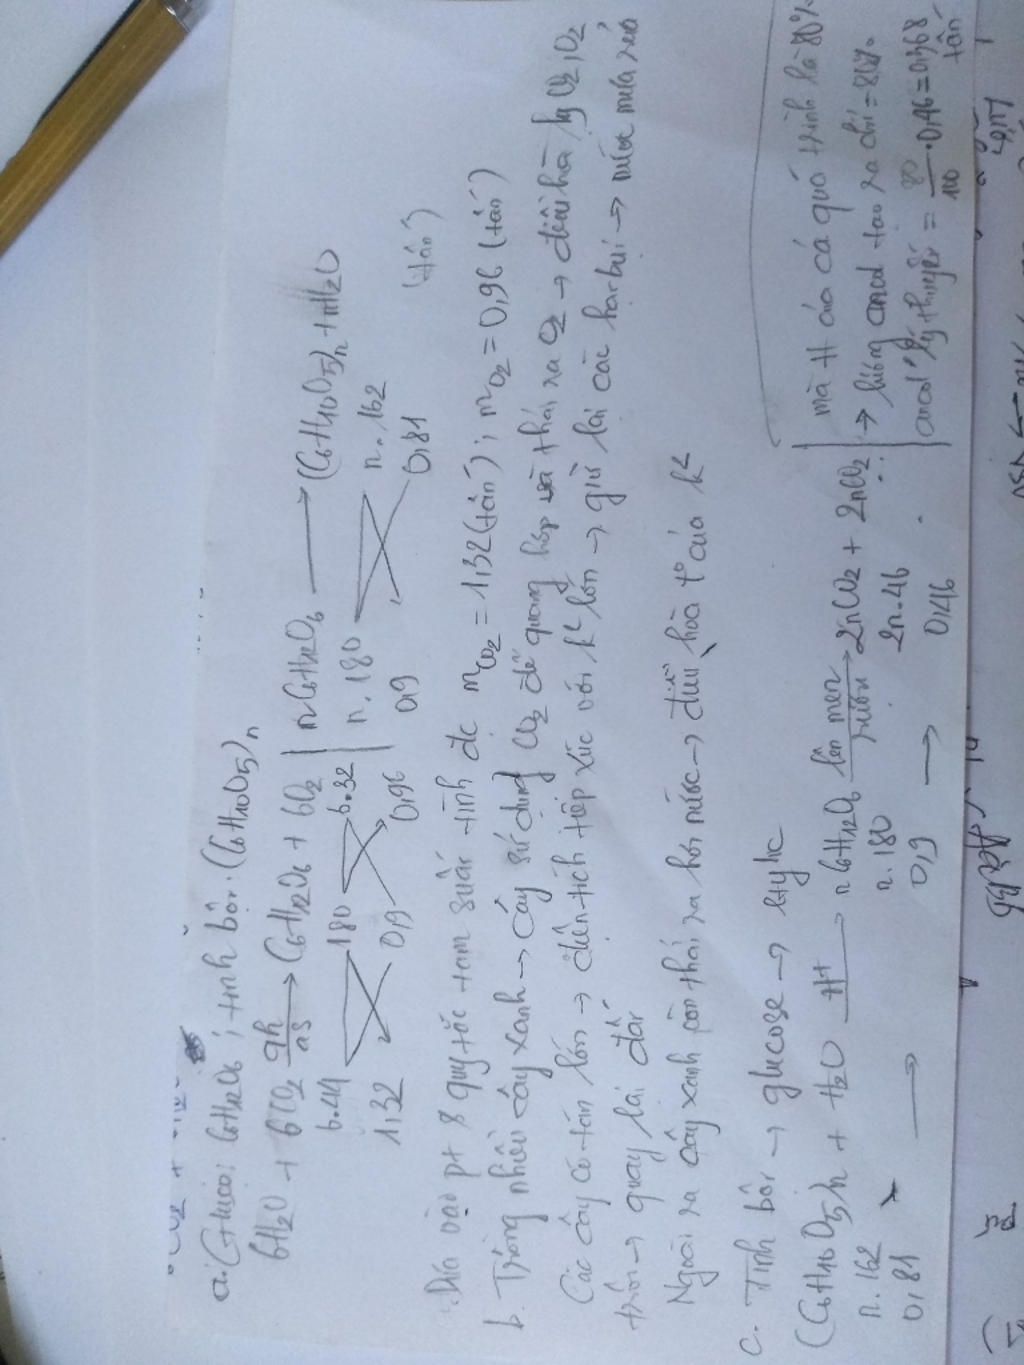 a. Glucoi: C6H12O6; tinh bột: (C6H10O5)n
6H2O + 6CO2 qh/as → C6H12O6 + 6O2 | nC6H12O6 → (C6H10O5)n + nH2O
6.44 180 6.32 | n.180 n.162
1,32 0,9 0,96 0,9 0,81 (tấn)
Dựa vào pt & quy tắc tam suất tính đc mCO2 = 1,32 (tấn); mO2 = 0,96 (tấn)
b. Trồng nhiều cây xanh → cây sử dụng CO2 để quang hợp và thải ra O2 → điều hoà kq CO2, O2
Các cây có tán lớn → diện tích tiếp xúc với k2 lớn → giữ lại các hạt bụi → nước mưa rửa
trôi → quay lại đất
Ngoài ra cây xanh còn thải ra hơi nước → điều hoà t° của k2
c. Tinh bột → glucose → etylic
(C6H10O5)n + H2O H+ → nC6H12O6 lên men/rượu → 2nCO2 + 2nCO2
n.162 n.180 2n.46
0,81 → 0,9 → 0,46
mà H của cả quá trình là 80%
→ lượng ancol tạo ra chỉ = 80%
ancol lý thuyết = 80/100 . 0,46 = 0,368
tấn